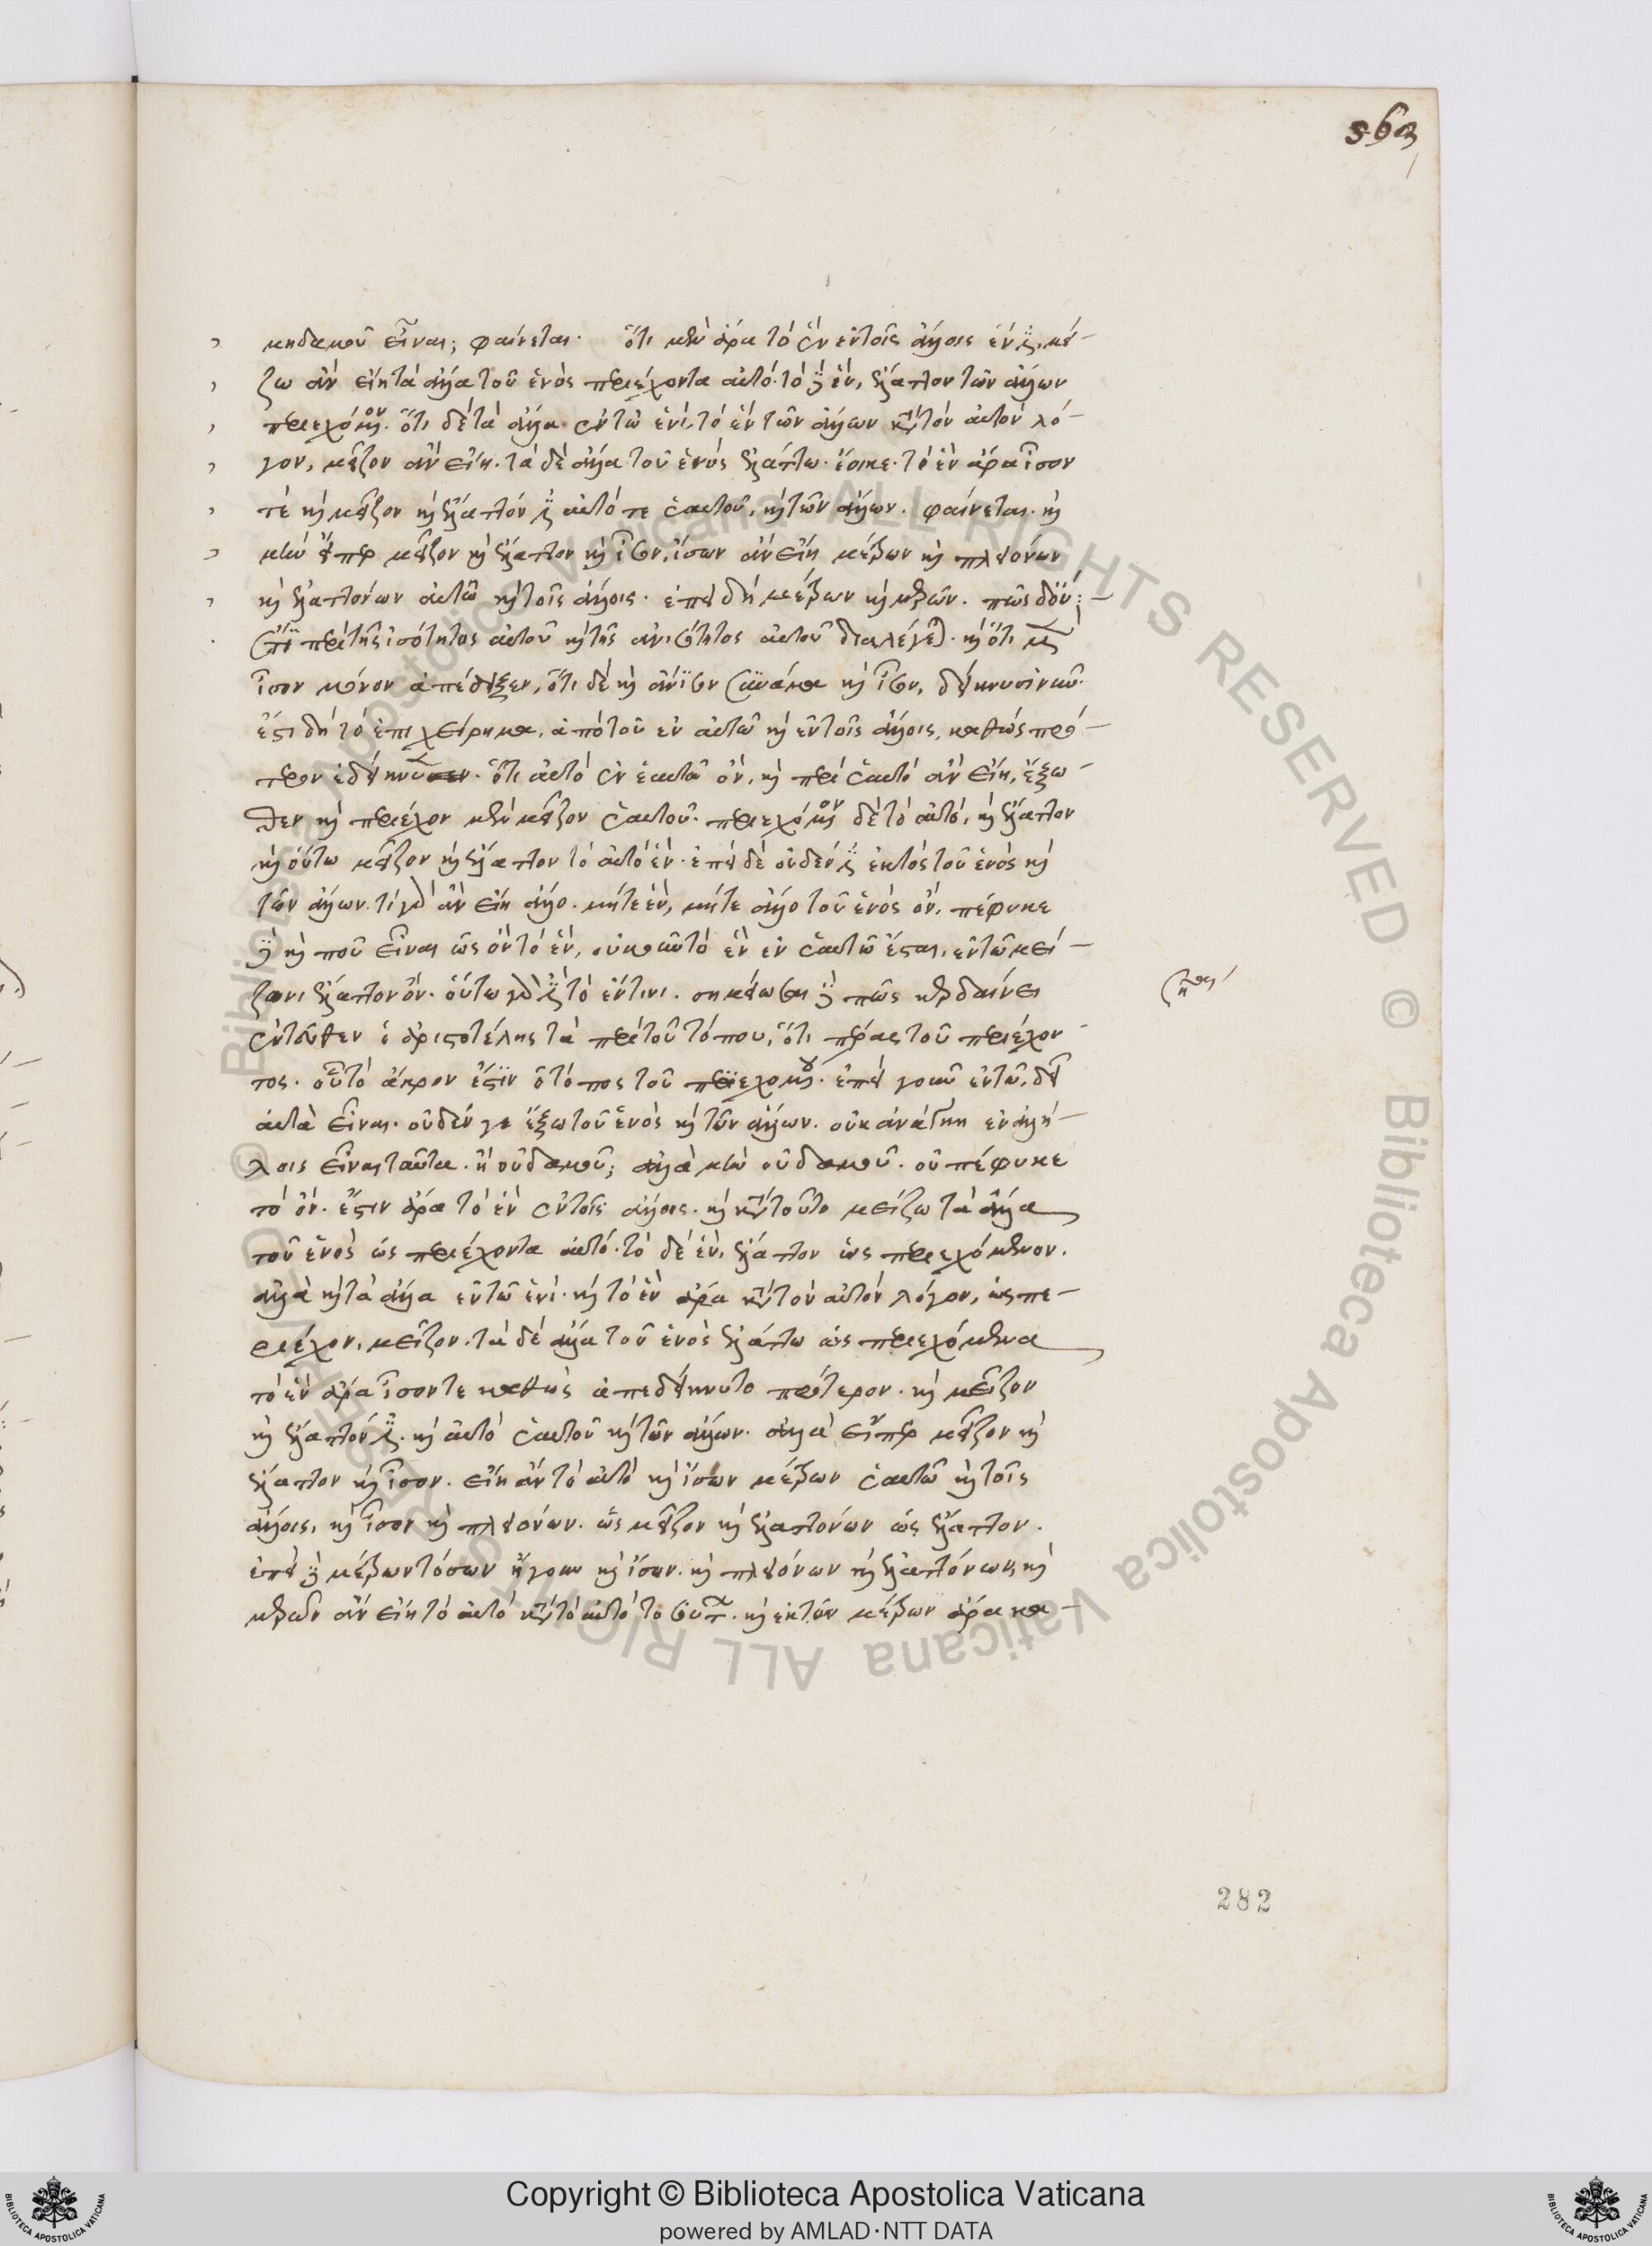 363
μηδαμοῦ εἶναι; φαίνεται. ὅτι μὲν ἄρα τὸ ἓν ἐν τοῖς ἄλλοις ἔνεστι, μεί-
ζω ἂν εἴη τὰ ἄλλα τοῦ ἑνὸς περιέχοντα αὐτό. τὸ δὲ ἓν, ἔλαττον τῶν ἄλλων
περιεχόμενον. ὅτι δὲ τὰ ἄλλα ἐν τῷ ἑνὶ, τὸ ἓν τῶν ἄλλων κατὰ τὸν αὐτὸν λό-
γον, μεῖζον ἂν εἴη. τὰ δὲ ἄλλα τοῦ ἑνὸς ἐλάττω. ἔοικε. τὸ ἓν ἄρα ἴσον
τὲ καὶ μεῖζον καὶ ἔλαττόν ἐστι αὐτό τε ἑαυτοῦ, καὶ τῶν ἄλλων. φαίνεται. καὶ
μὴν εἴπερ μεῖζον καὶ ἔλαττον καὶ ἴσον, ἴσων ἂν εἴη μέτρων καὶ πλειόνων
καὶ ἐλαττόνων αὑτῷ καὶ τοῖς ἄλλοις. ἐπειδὴ μέτρων καὶ μερῶν. πῶς δ' οὔ;
ἔτι περὶ τῆς ἰσότητος αὐτοῦ καὶ τῆς ἀνισότητος αὐτοῦ διαλέγεται. καὶ ὅτι μὲν
ἴσον μόνον ἀπέδειξεν, ὅτι δὲ καὶ ἄνισον ἅμα καὶ ἴσον, δείκνυσι νῦν.
ἔστι δὴ τὸ ἐπιχείρημα, ἀπὸ τοῦ ἐν αὑτῷ καὶ ἐν τοῖς ἄλλοις, καθὼς πρό-
τερον ἐδείκνυεν. ὅτι αὐτὸ ἐν ἑαυτῷ ὂν, καὶ περὶ ἑαυτὸ ἂν εἴη, ἔξω-
θεν καὶ περιέχον μὲν μεῖζον ἑαυτοῦ. περιεχόμενον δὲ τὸ αὐτό, καὶ ἔλαττον
καὶ οὕτω μεῖζον καὶ ἔλαττον τὸ αὐτὸ ἕν. ἐπεὶ δὲ οὐδέν ἐστι ἐκτὸς τοῦ ἑνὸς καὶ
τῶν ἄλλων. τί γὰρ ἂν εἴη ἄλλο. μήτε ἓν, μήτε ἄλλο τοῦ ἑνὸς ὂν, πέφυκε
δὲ καὶ ποῦ εἶναι ὡς ὂν τὸ ἓν, οὐκοῦν τὸ ἓν ἐν ἑαυτῷ ἔσται, ἐν τῷ μεί-
ζονι ἔλαττον ὄν. οὕτω γὰρ ἐστι τὸ ἔν τινι. σημείωσαι δὲ πῶς κερδαίνει
ἐντεῦθεν ὁ ἀριστοτέλης τὰ περὶ τοῦ τόπου, ὅτι πέρας τοῦ περιέχον-
τος. οὗ τὸ ἄκρον ἐστὶν ὁ τόπος τοῦ περιεχομένου. ἐπεὶ γοῦν ἔν τῳ, δεῖ
αὐτὰ εἶναι. οὐδέν γε ἔξω τοῦ ἑνὸς καὶ τῶν ἄλλων. οὐκ ἀνάγκη ἐν ἀλλή-
λοις εἶναι ταῦτα. ἢ οὐδαμοῦ; ἀλλὰ μὴν οὐδαμοῦ. οὐ πέφυκε
τὸ ὄν. ἔστιν ἄρα τὸ ἓν ἐν τοῖς ἄλλοις. καὶ κατὰ τοῦτο μείζω τὰ ἄλλα
τοῦ ἑνὸς ὡς περιέχοντα αὐτό. τὸ δὲ ἓν, ἔλαττον ὡς περιεχόμενον.
ἀλλὰ καὶ τὰ ἄλλα ἐν τῷ ἑνί. καὶ τὸ ἓν ἄρα κατὰ τὸν αὐτὸν λόγον, ὡς πε-
ριέχον, μεῖζον. τὰ δὲ ἄλλα τοῦ ἑνὸς ἐλάττω ὡς περιεχόμενα
τὸ ἓν ἄρα ἴσον τε καθὼς ἀπεδείκνυτο πρότερον. καὶ μεῖζον
καὶ ἔλαττόν ἐστι. καὶ αὐτὸ ἑαυτοῦ καὶ τῶν ἄλλων. ἀλλὰ εἴπερ μεῖζον καὶ
ἔλαττον καὶ ἴσον. εἴη ἂν τὸ αὐτὸ καὶ ἴσων μέτρων ἑαυτῷ καὶ τοῖς
ἄλλοις, καὶ ἴσον καὶ πλειόνων. ὡς μεῖζον καὶ ἐλαττόνων ὡς ἔλαττον.
ἐπεὶ δὲ μέτρων τόσων ἤγουν καὶ ἴσων. καὶ πλειόνων καὶ ἐλαττόνων, καὶ
μερῶν ἂν εἴη τὸ αὐτὸ κατὰ τὸ αὐτὸ τοσούτων. καὶ ἐκ τῶν μέτρων ἄρα κα-
282